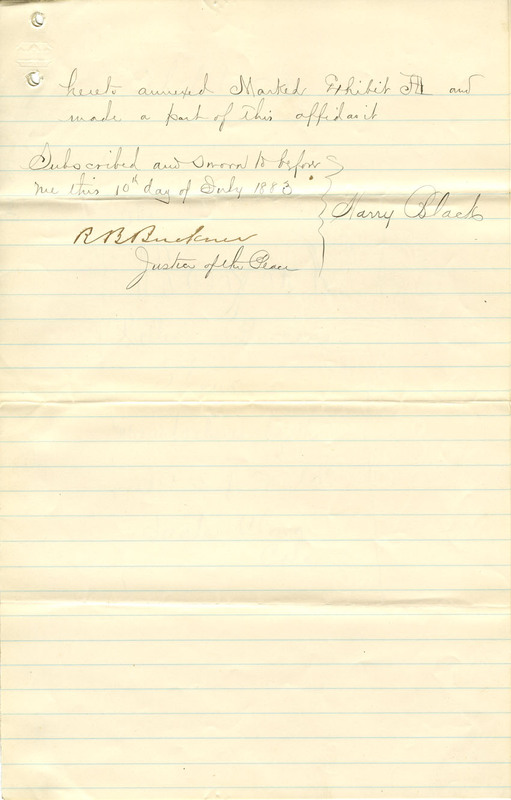 hereto annexed Marked Exhibit A and
made a part of this affidavit
Subscribed and sworn to before
me this 10th day of July 1883
Harry Black
R B Buckner
Justice of the Peace